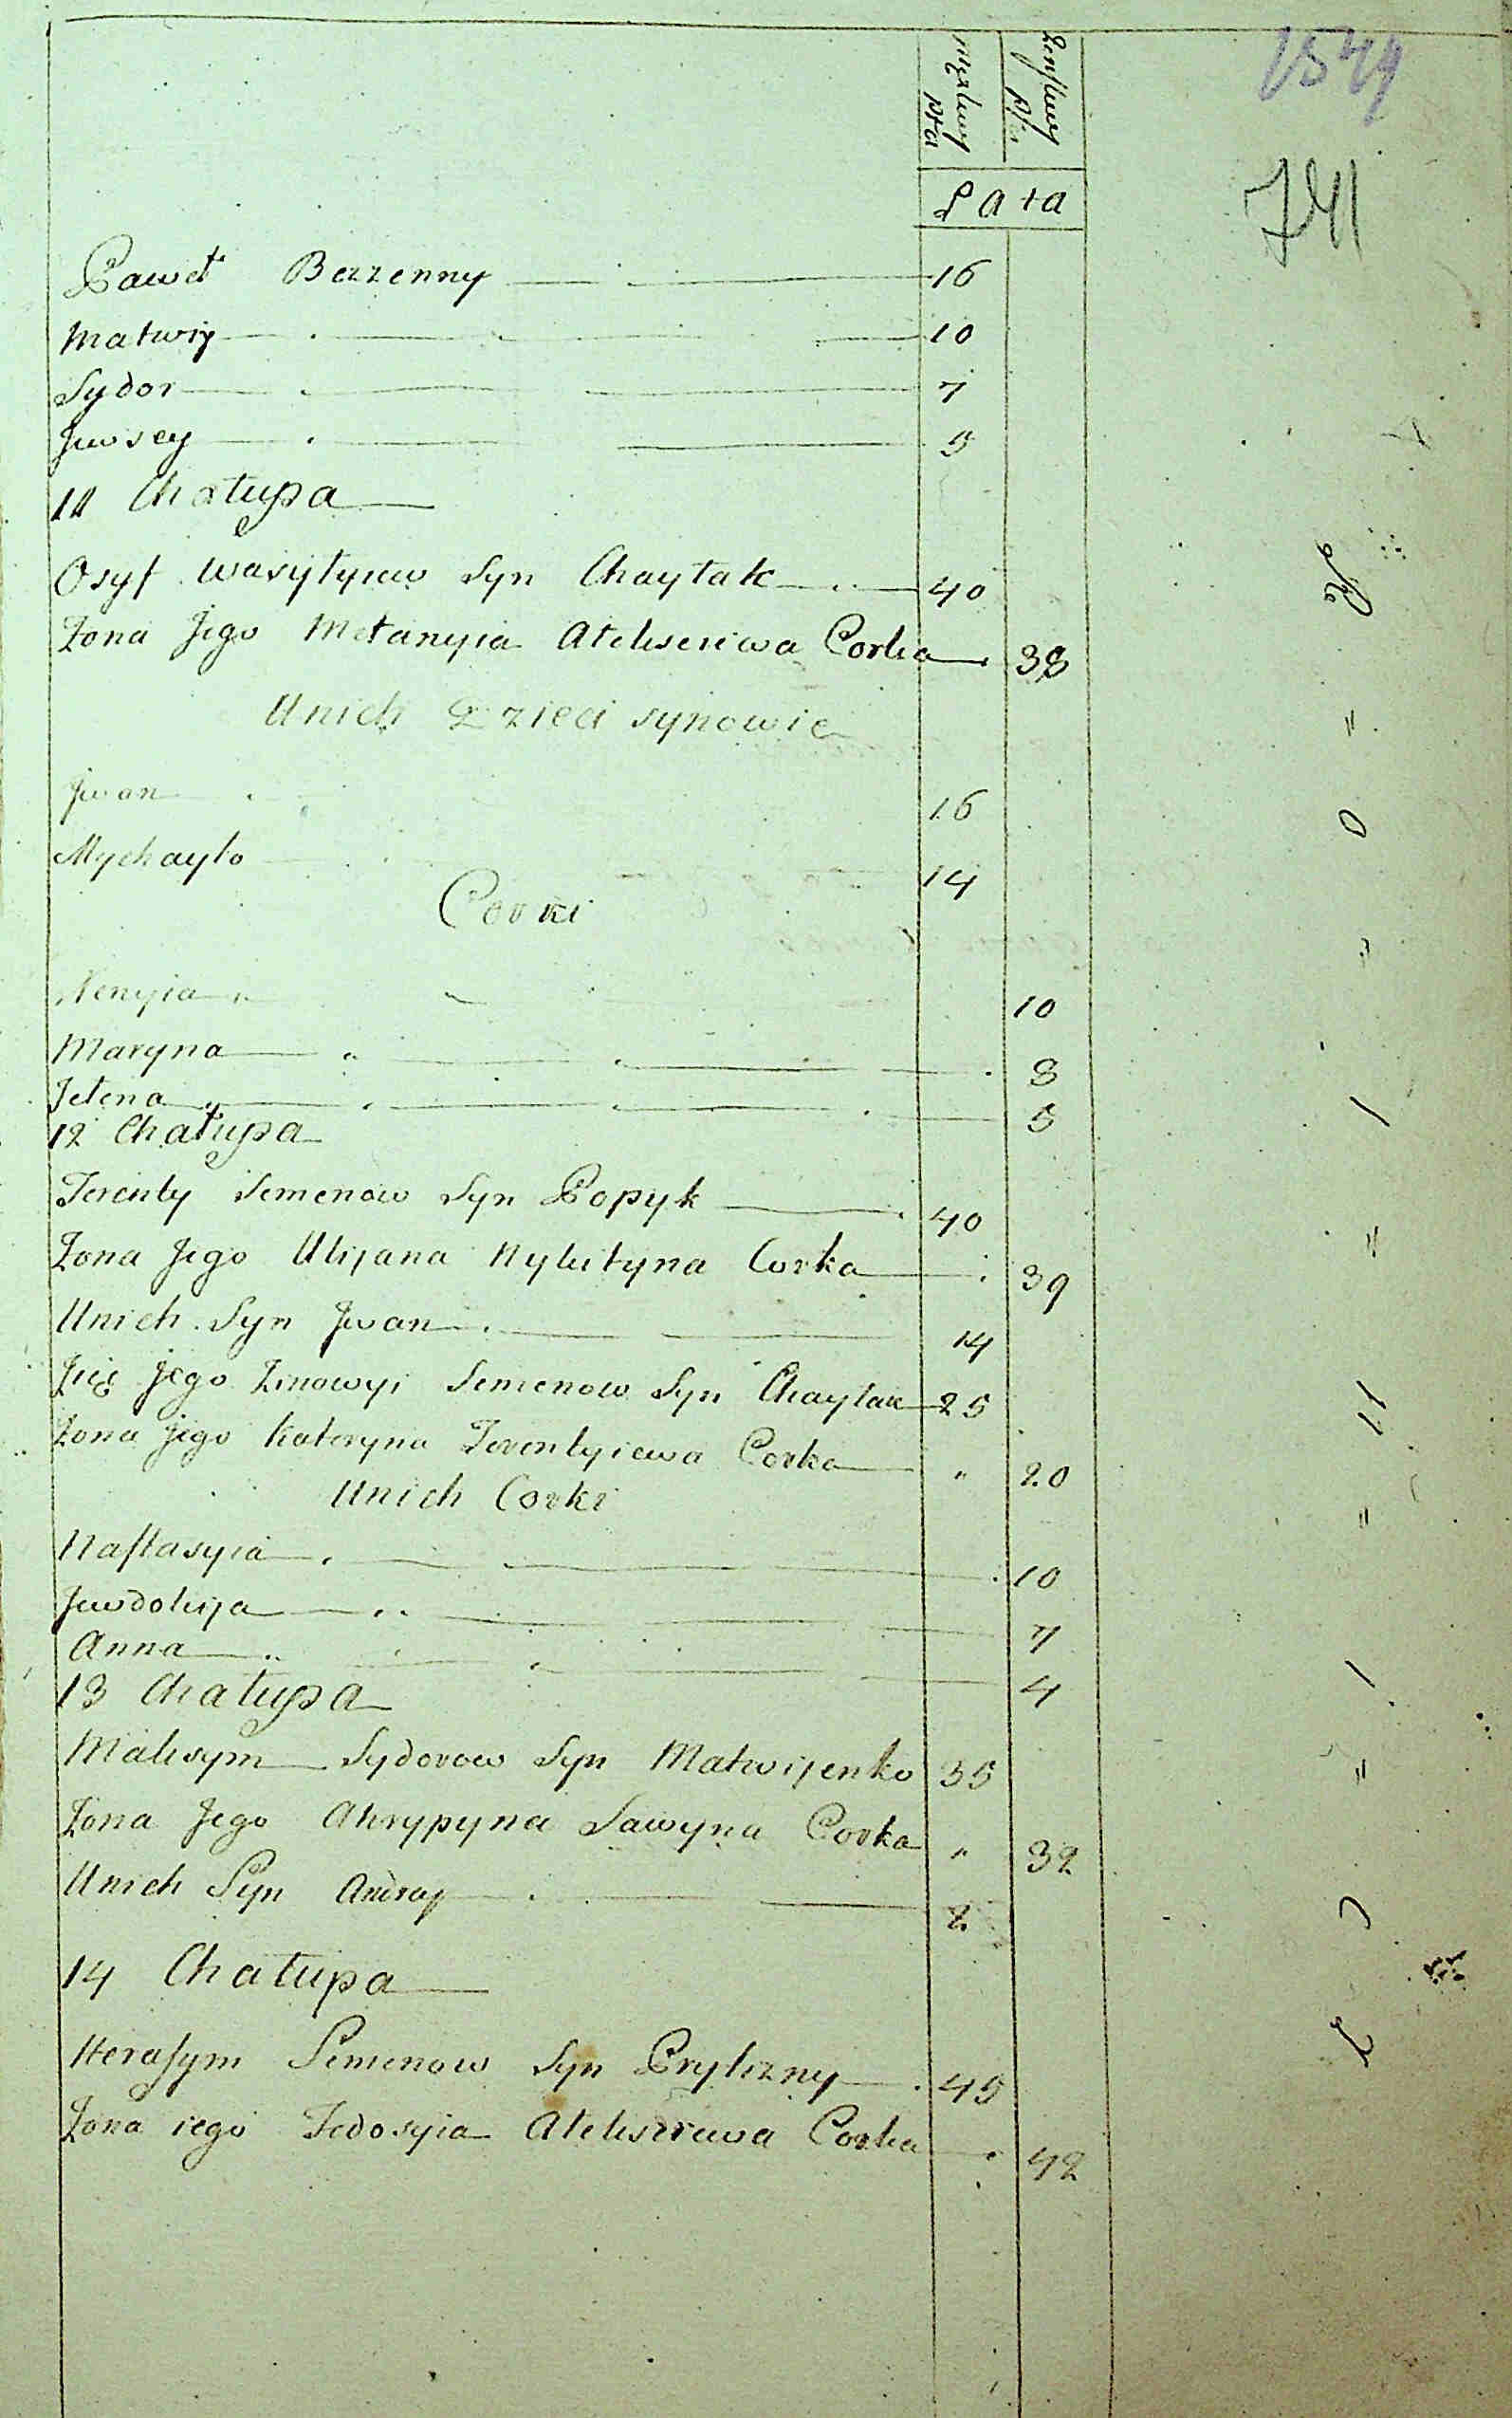 Męzkey płci
Zenskiey płci
1544
741
Lata
Paweł Bezzenny 16
Matwiy 10
Sydor 7
Jwsey 5
11 Chałupa
Osyf Wasylyiew Syn Chaylak 40
Zona Jego Mełanyia Ałekseiewa Corka 38
Unich Dzieci synowie
Jwan 16
Mychayło 14
Corki
Xenyia 10
Maryna 8
Jełena 5
12 Chałupa
Terenty Semenow Syn Popyk 40
Zona Jego Ulijana Nykityna Corka 39
Unich Syn Jwan 14
Zięć Jego Zinowyi Semenow Syn Chaylak 25
Zona Jego Kateryna Terentyiewa Corka " 20
Unich Corki
Nastasyia 10
Jewdokija 7
Anna 4
13 Chałupa
Maksym Sydorow Syn Matwijenko 35
Zona Jego Ahrypyna Sawyna Corka " 32
Unich Syn Andrey 2
14 Chałupa
Herasym Semenow Syn Prylizny 45
Zona iego Fedosyia Ałeksiewa Corka 42